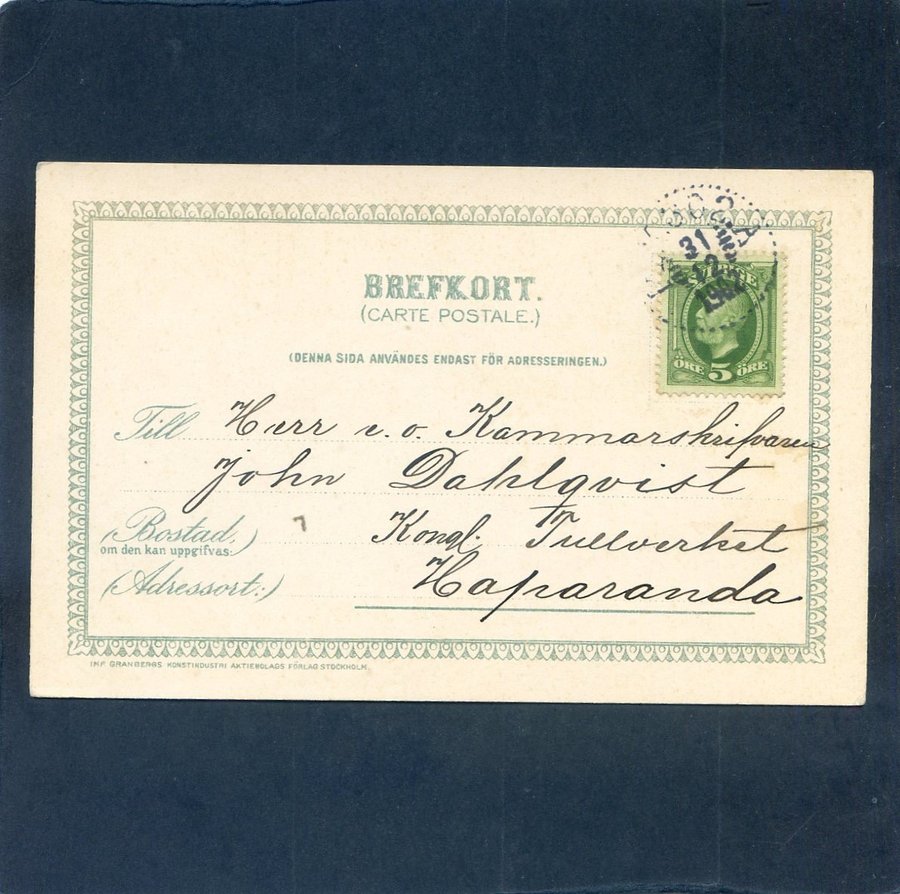 BREFKORT.
(CARTE POSTALE.)
(DENNA SIDA ANVÄNDES ENDAST FÖR ADRESSERINGEN.)
31
12
1902
SVERIGE
ÖRE 5 ÖRE
Till Herr e. o. Kammarskrifvaren
John Dahlqvist
(Bostad,
om den kan uppgifvas:)
Kongl. Tullverket
(Adressort:) Haparanda
IMF. GRANBERGS KONSTINDUSTRI AKTIEBOLAGS FÖRLAG STOCKHOLM.